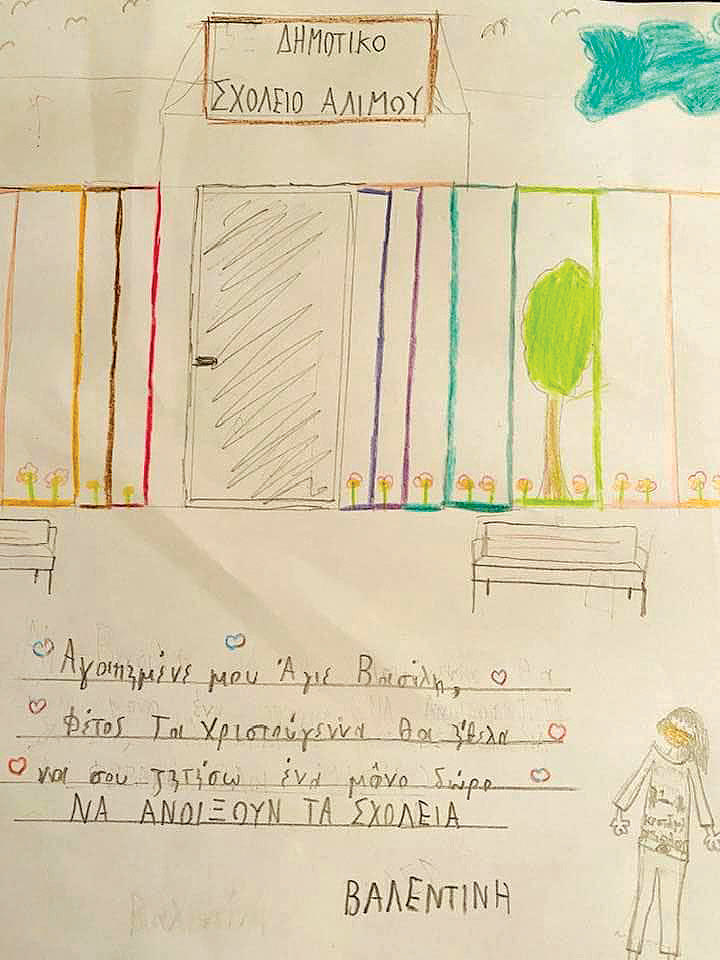 ΔΗΜΟΤΙΚΟ
ΣΧΟΛΕΙΟ ΑΛΙΜΟΥ
Αγαπημένε μου Άγιε Βασίλη,
Φέτος Τα Χριστούγεννα θα ήθελα
να σου ζητήσω ένα μόνο δώρο
ΝΑ ΑΝΟΙΞΟΥΝ ΤΑ ΣΧΟΛΕΙΑ
ΒΑΛΕΝΤΙΝΗ